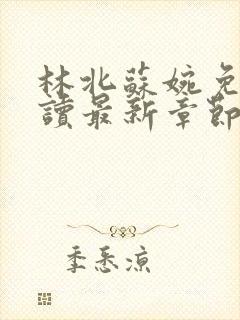 林北蘇婉免
讀最新章節
季悉涼